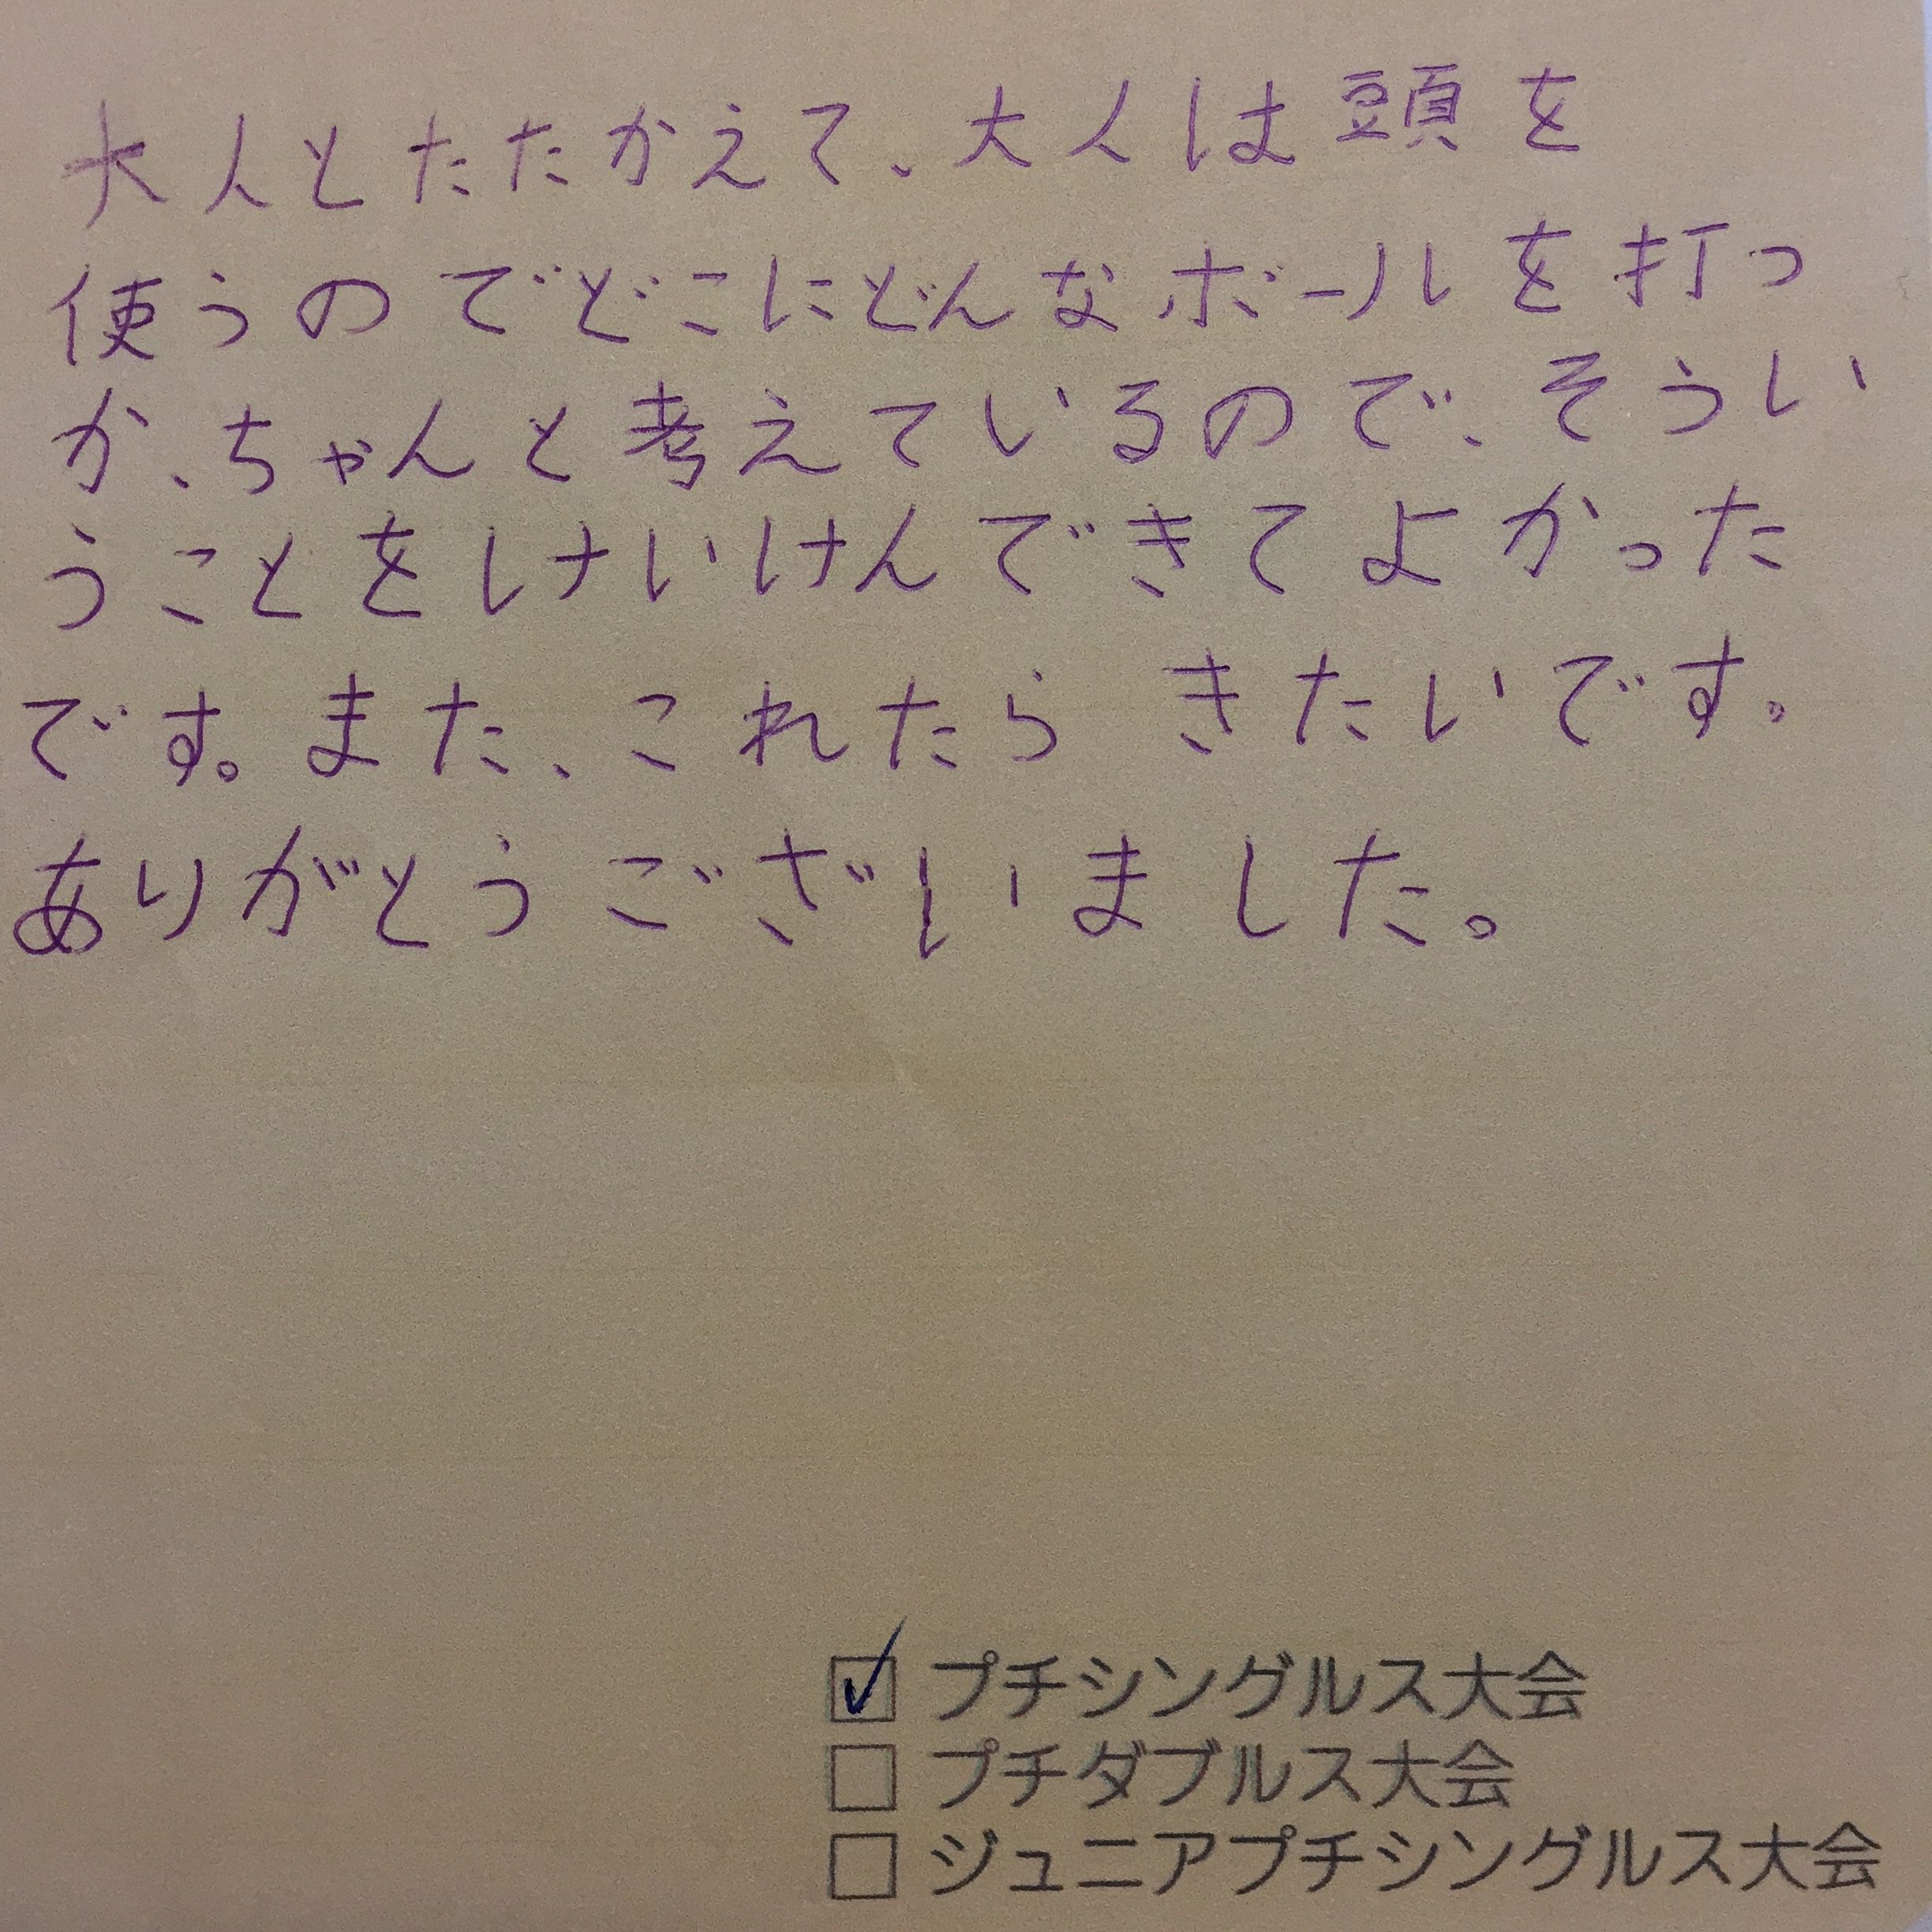 大人とたたかえて、大人は頭を
使うのでどこにどんなボールを打つ
か、ちゃんと考えているので、そうい
うことをけいけんできてよかった
です。また、これたらきたいです。
ありがとうございました。
☑ プチシングルス大会
□ プチダブルス大会
□ ジュニアプチシングルス大会